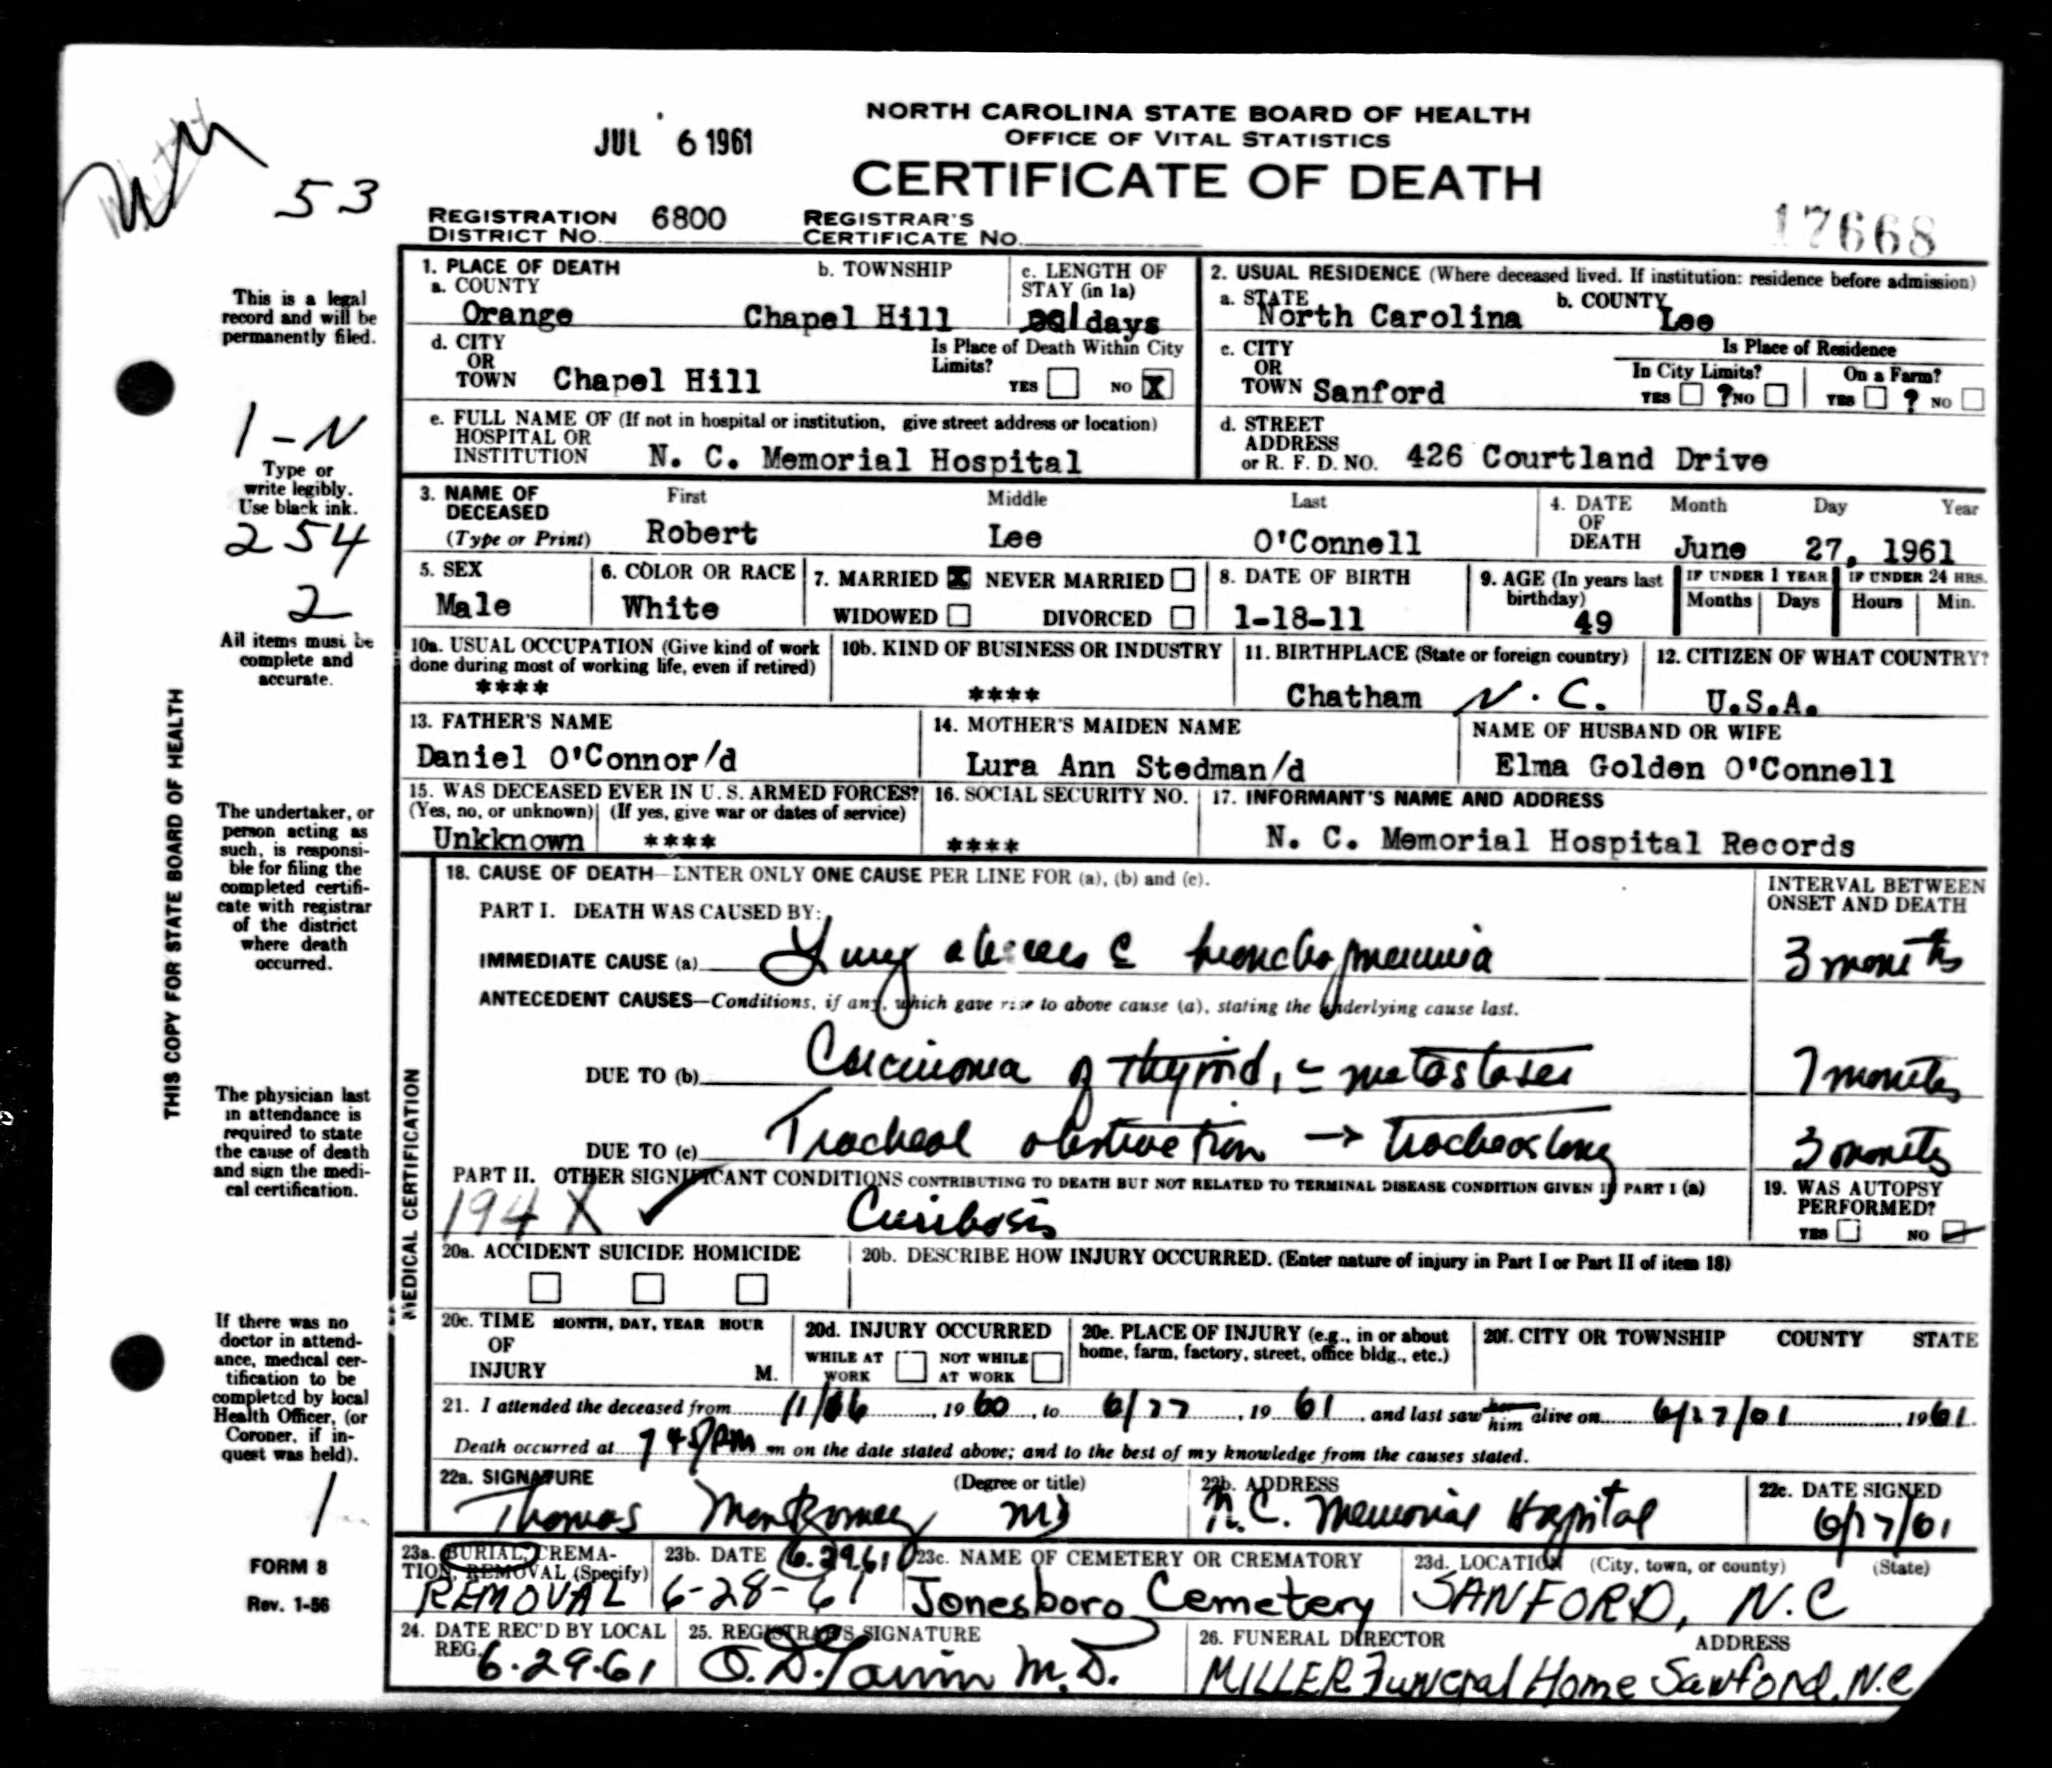 NORTH CAROLINA STATE BOARD OF HEALTH
OFFICE OF VITAL STATISTICS
JUL 6 1961
CERTIFICATE OF DEATH
53
REGISTRATION DISTRICT NO. 6800 REGISTRAR'S CERTIFICATE NO.
17668
1. PLACE OF DEATH
a. COUNTY Orange
b. TOWNSHIP Chapel Hill
c. LENGTH OF STAY (in 1a) days
d. CITY OR TOWN Chapel Hill
Is Place of Death Within City Limits? YES NO X
e. FULL NAME OF HOSPITAL OR INSTITUTION (If not in hospital or institution, give street address or location)
N. C. Memorial Hospital
2. USUAL RESIDENCE (Where deceased lived. If institution: residence before admission)
a. STATE North Carolina b. COUNTY Lee
c. CITY OR TOWN Sanford
Is Place of Residence
In City Limits? YES ? NO
On a Farm? YES ? NO
d. STREET ADDRESS or R. F. D. NO. 426 Courtland Drive
3. NAME OF DECEASED (Type or Print)
First Robert Middle Lee Last O'Connell
4. DATE OF DEATH Month Day Year
June 27, 1961
5. SEX Male
6. COLOR OR RACE White
7. MARRIED X NEVER MARRIED
WIDOWED DIVORCED
8. DATE OF BIRTH 1-18-11
9. AGE (In years last birthday) 49
IF UNDER 1 YEAR Months Days
IF UNDER 24 HRS. Hours Min.
10a. USUAL OCCUPATION (Give kind of work done during most of working life, even if retired)
****
10b. KIND OF BUSINESS OR INDUSTRY
****
11. BIRTHPLACE (State or foreign country)
Chatham N.C.
12. CITIZEN OF WHAT COUNTRY?
U.S.A.
13. FATHER'S NAME
Daniel O'Connor/d
14. MOTHER'S MAIDEN NAME
Lura Ann Stedman/d
NAME OF HUSBAND OR WIFE
Elma Golden O'Connell
15. WAS DECEASED EVER IN U. S. ARMED FORCES?
(Yes, no, or unknown) (If yes, give war or dates of service)
Unkknown ****
16. SOCIAL SECURITY NO.
****
17. INFORMANT'S NAME AND ADDRESS
N. C. Memorial Hospital Records
MEDICAL CERTIFICATION
18. CAUSE OF DEATH—ENTER ONLY ONE CAUSE PER LINE FOR (a), (b) and (c).
INTERVAL BETWEEN ONSET AND DEATH
PART I. DEATH WAS CAUSED BY:
IMMEDIATE CAUSE (a) Lung abscess c bronchopneumonia 3 months
ANTECEDENT CAUSES—Conditions, if any, which gave rise to above cause (a), stating the underlying cause last.
DUE TO (b) Carcinoma of thyroid, c metastases 7 months
DUE TO (c) Tracheal obstruction → tracheostomy 3 months
PART II. OTHER SIGNIFICANT CONDITIONS CONTRIBUTING TO DEATH BUT NOT RELATED TO TERMINAL DISEASE CONDITION GIVEN IN PART I (a)
194 X ✓
19. WAS AUTOPSY PERFORMED?
YES NO
20a. ACCIDENT SUICIDE HOMICIDE
20b. DESCRIBE HOW INJURY OCCURRED. (Enter nature of injury in Part I or Part II of item 18)
20c. TIME OF INJURY MONTH, DAY, YEAR HOUR M.
20d. INJURY OCCURRED
WHILE AT WORK NOT WHILE AT WORK
20e. PLACE OF INJURY (e.g., in or about home, farm, factory, street, office bldg., etc.)
20f. CITY OR TOWNSHIP COUNTY STATE
21. I attended the deceased from 11/ , 1960, to 6/27, 1961, and last saw her him alive on 6/27/61 1961.
Death occurred at PM m on the date stated above; and to the best of my knowledge from the causes stated.
22a. SIGNATURE (Degree or title)
Thomas Montgomery MD
22b. ADDRESS
N.C. Memorial Hospital
22c. DATE SIGNED
6/27/61
23a. BURIAL, CREMATION, REMOVAL (Specify)
REMOVAL
23b. DATE 6.29.61
6-28-61
23c. NAME OF CEMETERY OR CREMATORY
Jonesboro Cemetery
23d. LOCATION (City, town, or county) (State)
SANFORD, N.C
24. DATE REC'D BY LOCAL REG.
6.29.61
25. REGISTRAR'S SIGNATURE
M.D.
26. FUNERAL DIRECTOR ADDRESS
MILLER Funeral Home Sanford, N.C
This is a legal record and will be permanently filed.
1-N
Type or write legibly. Use black ink.
254
2
All items must be complete and accurate.
THIS COPY FOR STATE BOARD OF HEALTH
The undertaker, or person acting as such, is responsible for filing the completed certificate with registrar of the district where death occurred.
The physician last in attendance is required to state the cause of death and sign the medical certification.
If there was no doctor in attendance, medical certification to be completed by local Health Officer, (or Coroner, if inquest was held).
1
FORM 8
Rev. 1-56